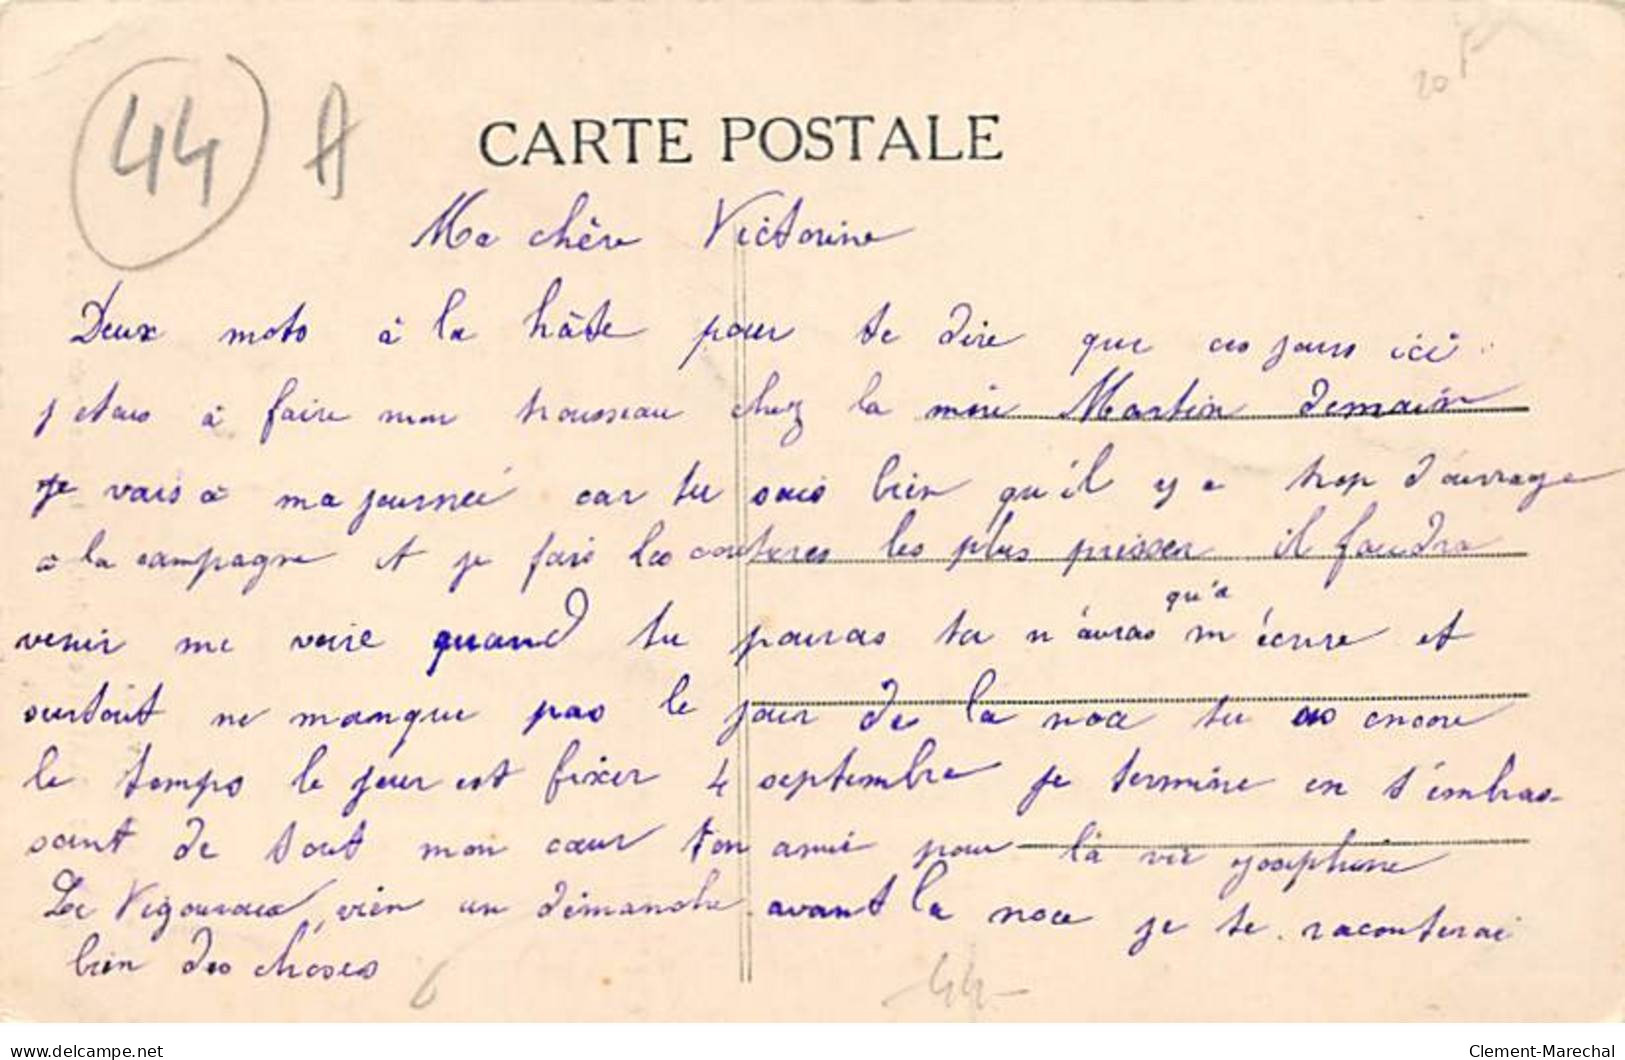 44 A
20 F
CARTE POSTALE
Ma chère Victorine
Deux mots à la hâte pour te dire que ces jours ici
j étais à faire mon trousseau chez la mère Martin demain
je vais à ma journeé car tu sais bien qu'il y a trop d'ouvrage
à la campagne et je fais les coutures les plus presser il faudra
venir me voire quand tu pouras tu n'auras qu'a m'écrire et
surtout ne manque pas le jour de la noce tu as encore
le temps le jour est fixer 4 septembre je termine en t'embras-
sant de tout mon cœur ton amie pour la vie Josephine
Le Vigouroux, vien un dimanche avant la noce je te raconterai
bien des choses
44
www.delcampe.net
Clement-Marechal